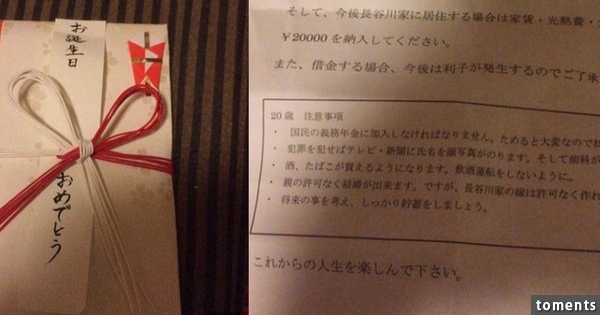 お誕生日
おめでとう
そして、今後長谷川家に居住する場合は家賃・光熱費・
￥20000を納入してください。
また、借金する場合、今後は利子が発生するのでご了承
20歳　注意事項
・ 国民の義務年金に加入しなければなりません。ためると大変なので
・ 犯罪を犯せばテレビ・新聞に氏名を顔写真がのります。そして前科が
・ 酒、たばこが買えるようになります。飲酒運転をしないように。
・ 親の許可なく結婚が出来ます。ですが、長谷川家の嫁は許可なく作れ
・ 将来の事を考え、しっかり貯蓄をしましょう。
これからの人生を楽しんで下さい。
toments